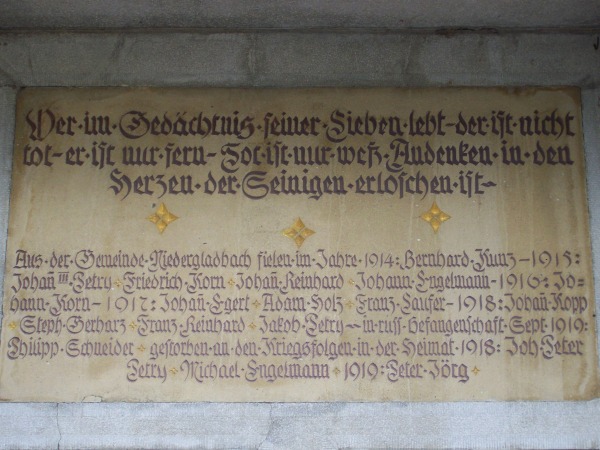 Wer·im·Gedächtnis·seiner·Lieben·lebt-der·ist·nicht
tot-er·ist·nur·fern-Tot·ist·nur·weß·Andenken·in·den
Herzen·der·Seinigen·erloschen·ist-
Aus·der·Gemeinde·Niedergladbach·fielen·im·Jahre·1914:Bernhard·Kunz-1915:
Johañ III Petry Friedrich·Korn Johañ·Reinhard Johann·Engelmann-1916:Jo-
hann·Korn-1917:Johañ·Egert Adam·Holz Franz·Laufer-1918:Johañ·Kopp
Steph·Gerharz Franz·Reinhard Jakob·Petry-in·russ·Gefangenschaft·Sept·1919:
Philipp·Schneider gestorben·an·den·Kriegsfolgen·in·der·Heimat·1918:Joh·Peter
Petry Michael·Engelmann 1919:Peter·Jörg